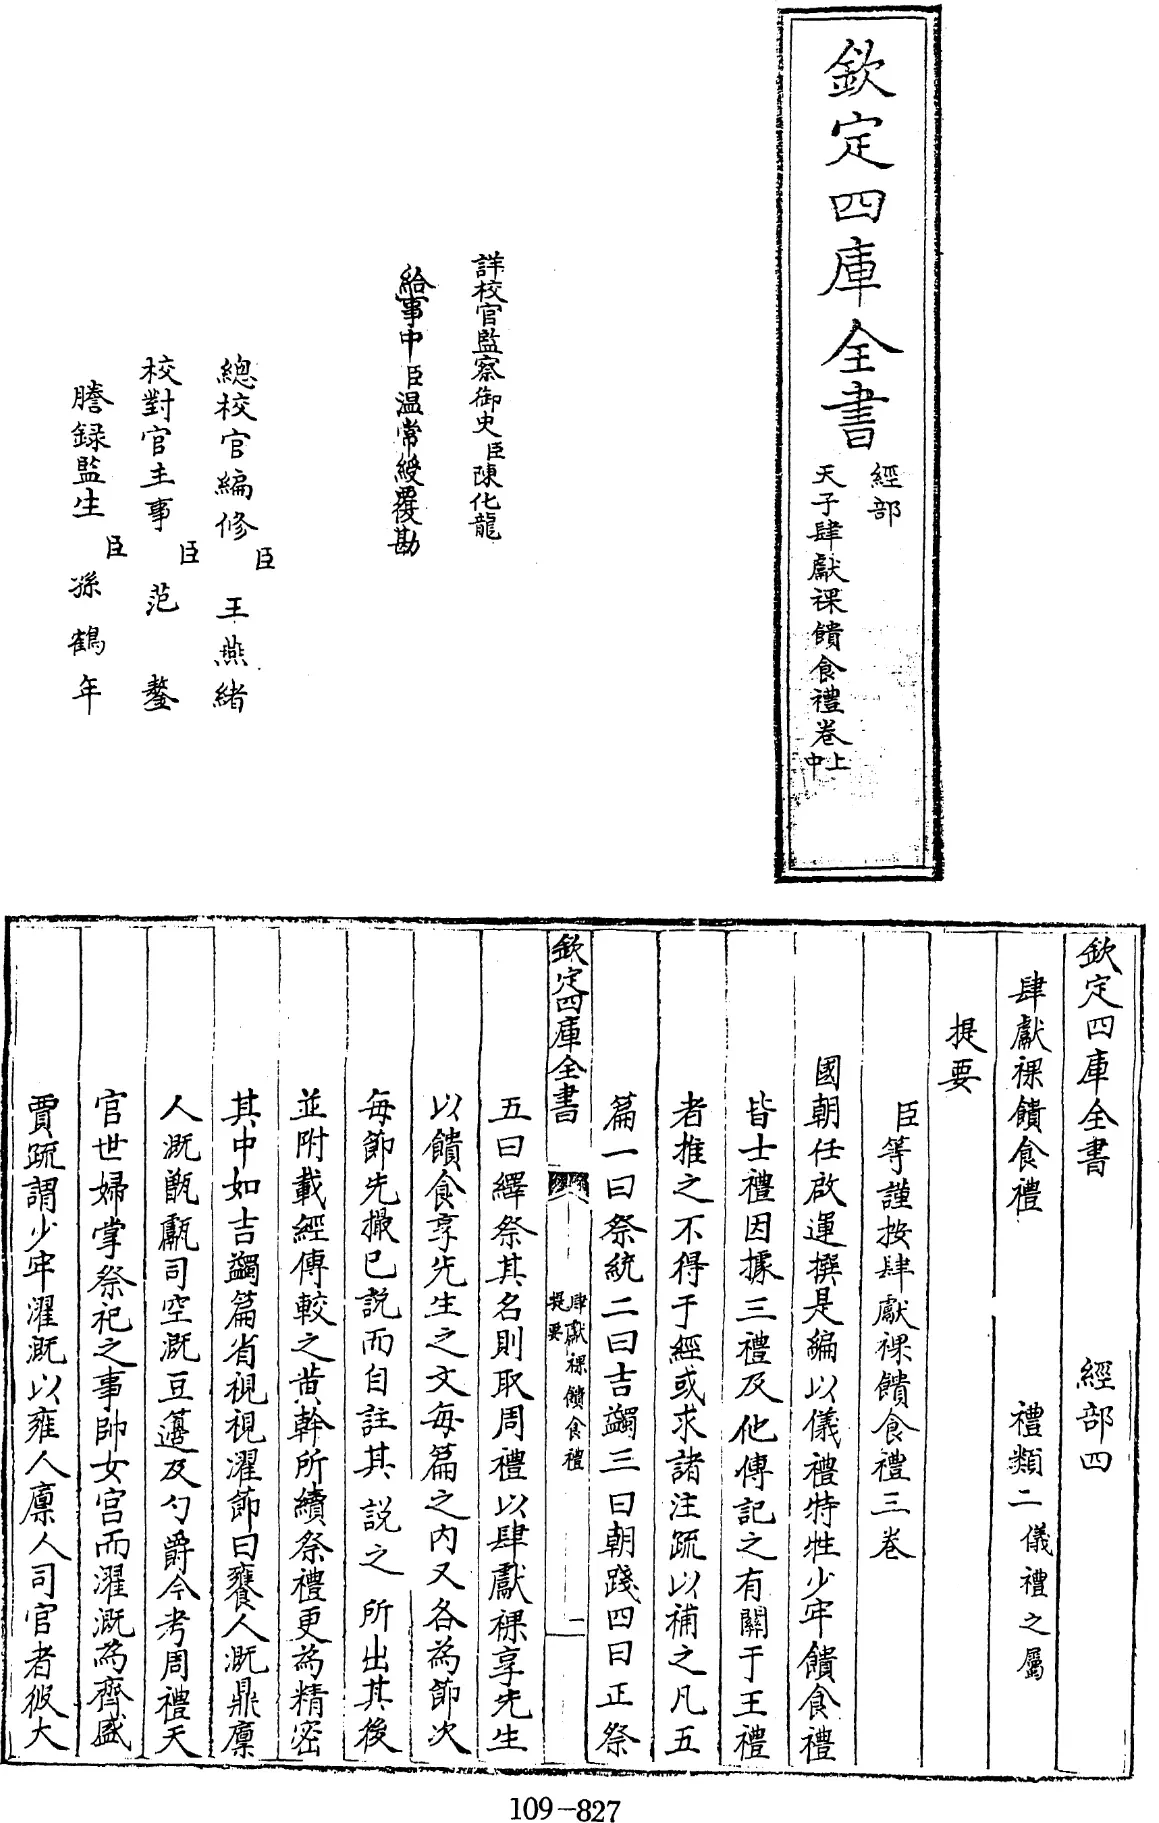 欽定四庫全書
經部
天子肆獻祼饋食禮卷上中
詳校官監察御史臣陳化龍
給事中臣温常綬覆勘
總校官編修臣王燕緒
校對官主事臣范鏊
謄録監生臣孫鶴年
欽定四庫全書 經部四
肆獻祼饋食禮 禮類二儀禮之屬
提要
臣等謹按肆獻祼饋食禮三卷
國朝任啟運撰是編以儀禮特牲少牢饋食禮
皆士禮因據三禮及他傳記之有關于王禮
者推之不得于經或求諸注疏以補之凡五
篇一曰祭統二曰吉蠲三曰朝踐四曰正祭
欽定四庫全書
肆獻祼饋食禮
提要
一
五曰繹祭其名則取周禮以肆獻祼享先生
以饋食享先生之文每篇之内又各為節次
每節先撮已説而自註其説之所出其後
並附載經傳較之黄幹所續祭禮更為精密
其中如吉蠲篇省視視濯節曰饔人溉鼎廪
人溉甑甗司空溉豆籩及勺爵今考周禮天
官世婦掌祭祀之事帥女宫而濯溉為齊盛
賈疏謂少牢濯溉以雍人廪人司官者彼大
109-827